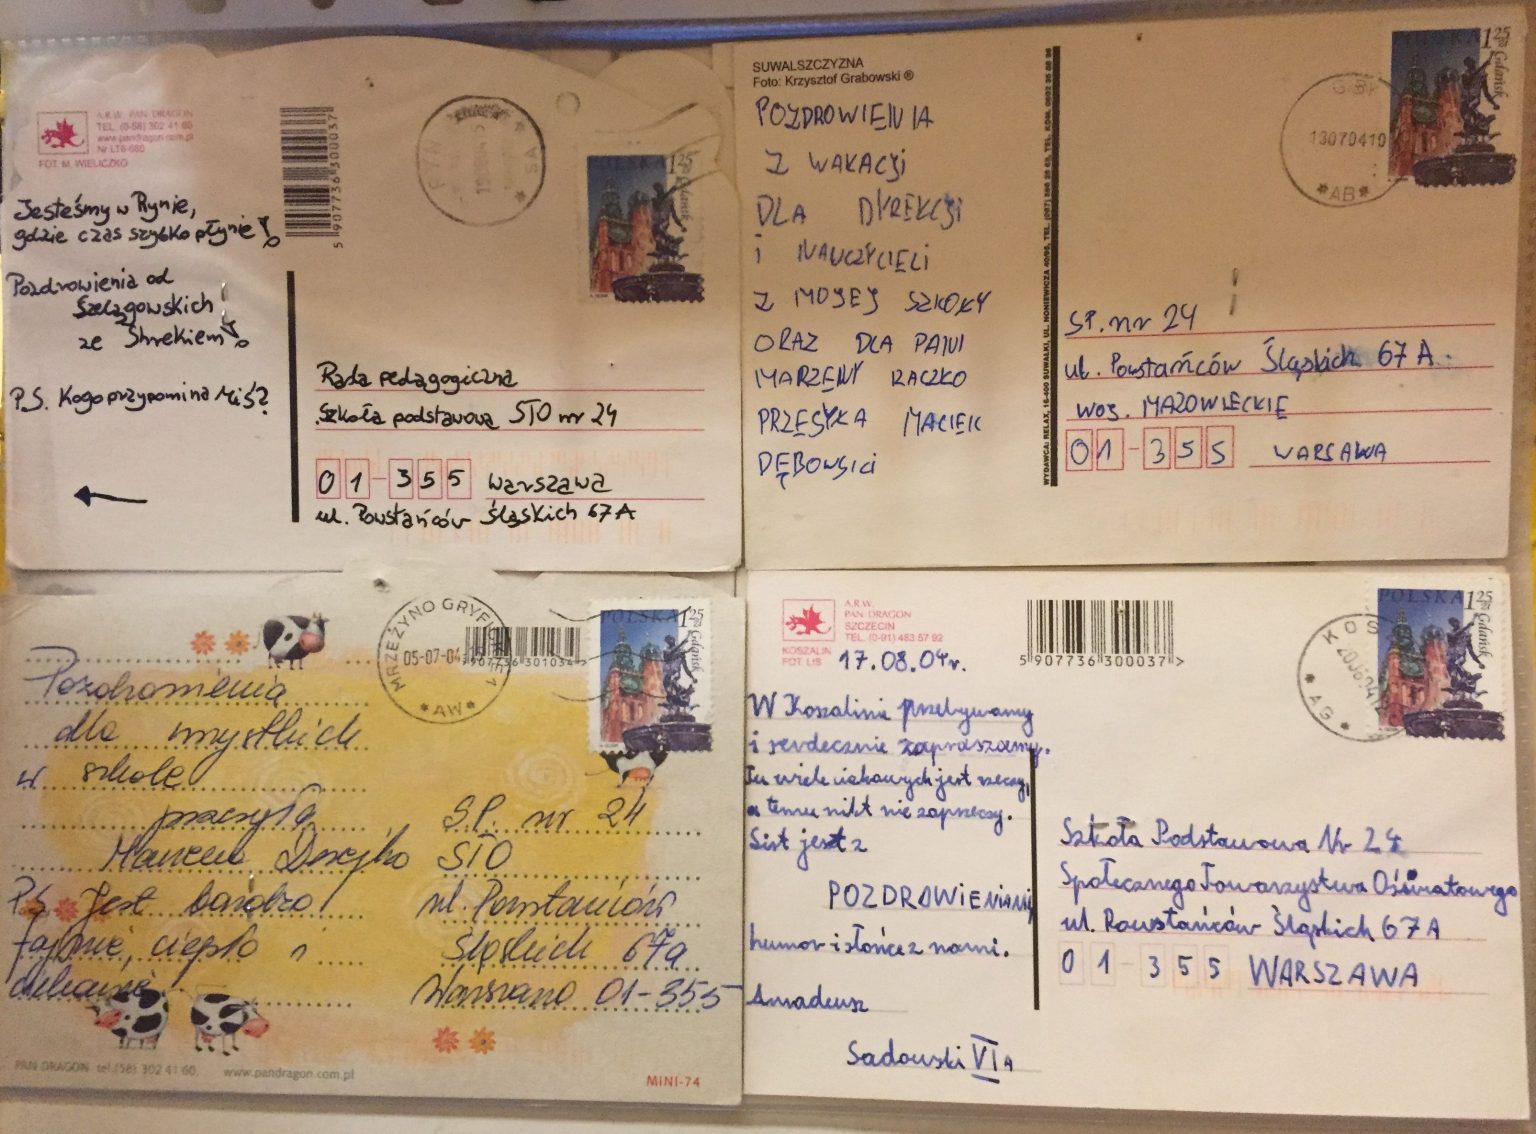 A.R.W. PAN DRAGON
TEL. (0-58) 302 41 60
www.pandragon.com.pl
Nr LT6-680
FOT. M. WIELICZKO
5 907736 300037
POLSKA 1,25 zł
Gdańsk
Jesteśmy w Rynie,
gdzie czas szybko płynie!
Pozdrowienia od
Szelągowskich
ze Shrekiem!
P.S. Kogo przypomina Miś?
Rada pedagogiczna
Szkoła podstawowa STO nr 24
01-355 Warszawa
ul. Powstańców Śląskich 67A
SUWALSZCZYZNA
Foto: Krzysztof Grabowski ®
POZDROWIENIA
Z WAKACJI
DLA DYREKCJI
i NAUCZYCIELI
Z MOJEJ SZKOŁY
ORAZ DLA PANI
MARZENY RACZKO
PRZESYŁA MACIEK
DĘBOWSKI
POLSKA 1,25 zł
Gdańsk
130704 10
*AB*
SP. nr 24
ul. Powstańców Śląskich 67A.
woj. MAZOWIECKIE
01-355 WARSAWA
MRZEŻYNO GRYFICKIE 1
05-07-04
*AW*
7907736 301034 >
POLSKA 1,25 zł
Gdańsk
Pozdrowienia
dla wszystkich
w szkole
przesyła
P.S. Jest bardzo
fajnie, ciepło i
ciekawie
S.P. nr 24
STO
ul. Powstańców
Śląskich 67a
Warszawa 01-355
PAN DRAGON tel.(58) 302 41 60, www.pandragon.com.pl
MINI-74
A.R.W.
PAN DRAGON
SZCZECIN
TEL. (0-91) 483 57 92
KOSZALIN
FOT. LIS
17.08.04r.
5 907736 300037 >
POLSKA 1,25 zł
Gdańsk
*AG*
W Koszalinie przebywamy
i serdecznie zapraszamy.
Tu wiele ciekawych jest rzeczy,
a temu nikt nie zaprzeczy.
List jest z
POZDROWIENIAMI
humor i słońce z nami.
Amadeusz
Sadowski VI A
Szkoła Podstawowa Nr 24
Społecznego Towarzystwa Oświatowego
ul. Powstańców Śląskich 67A
01-355 WARSZAWA